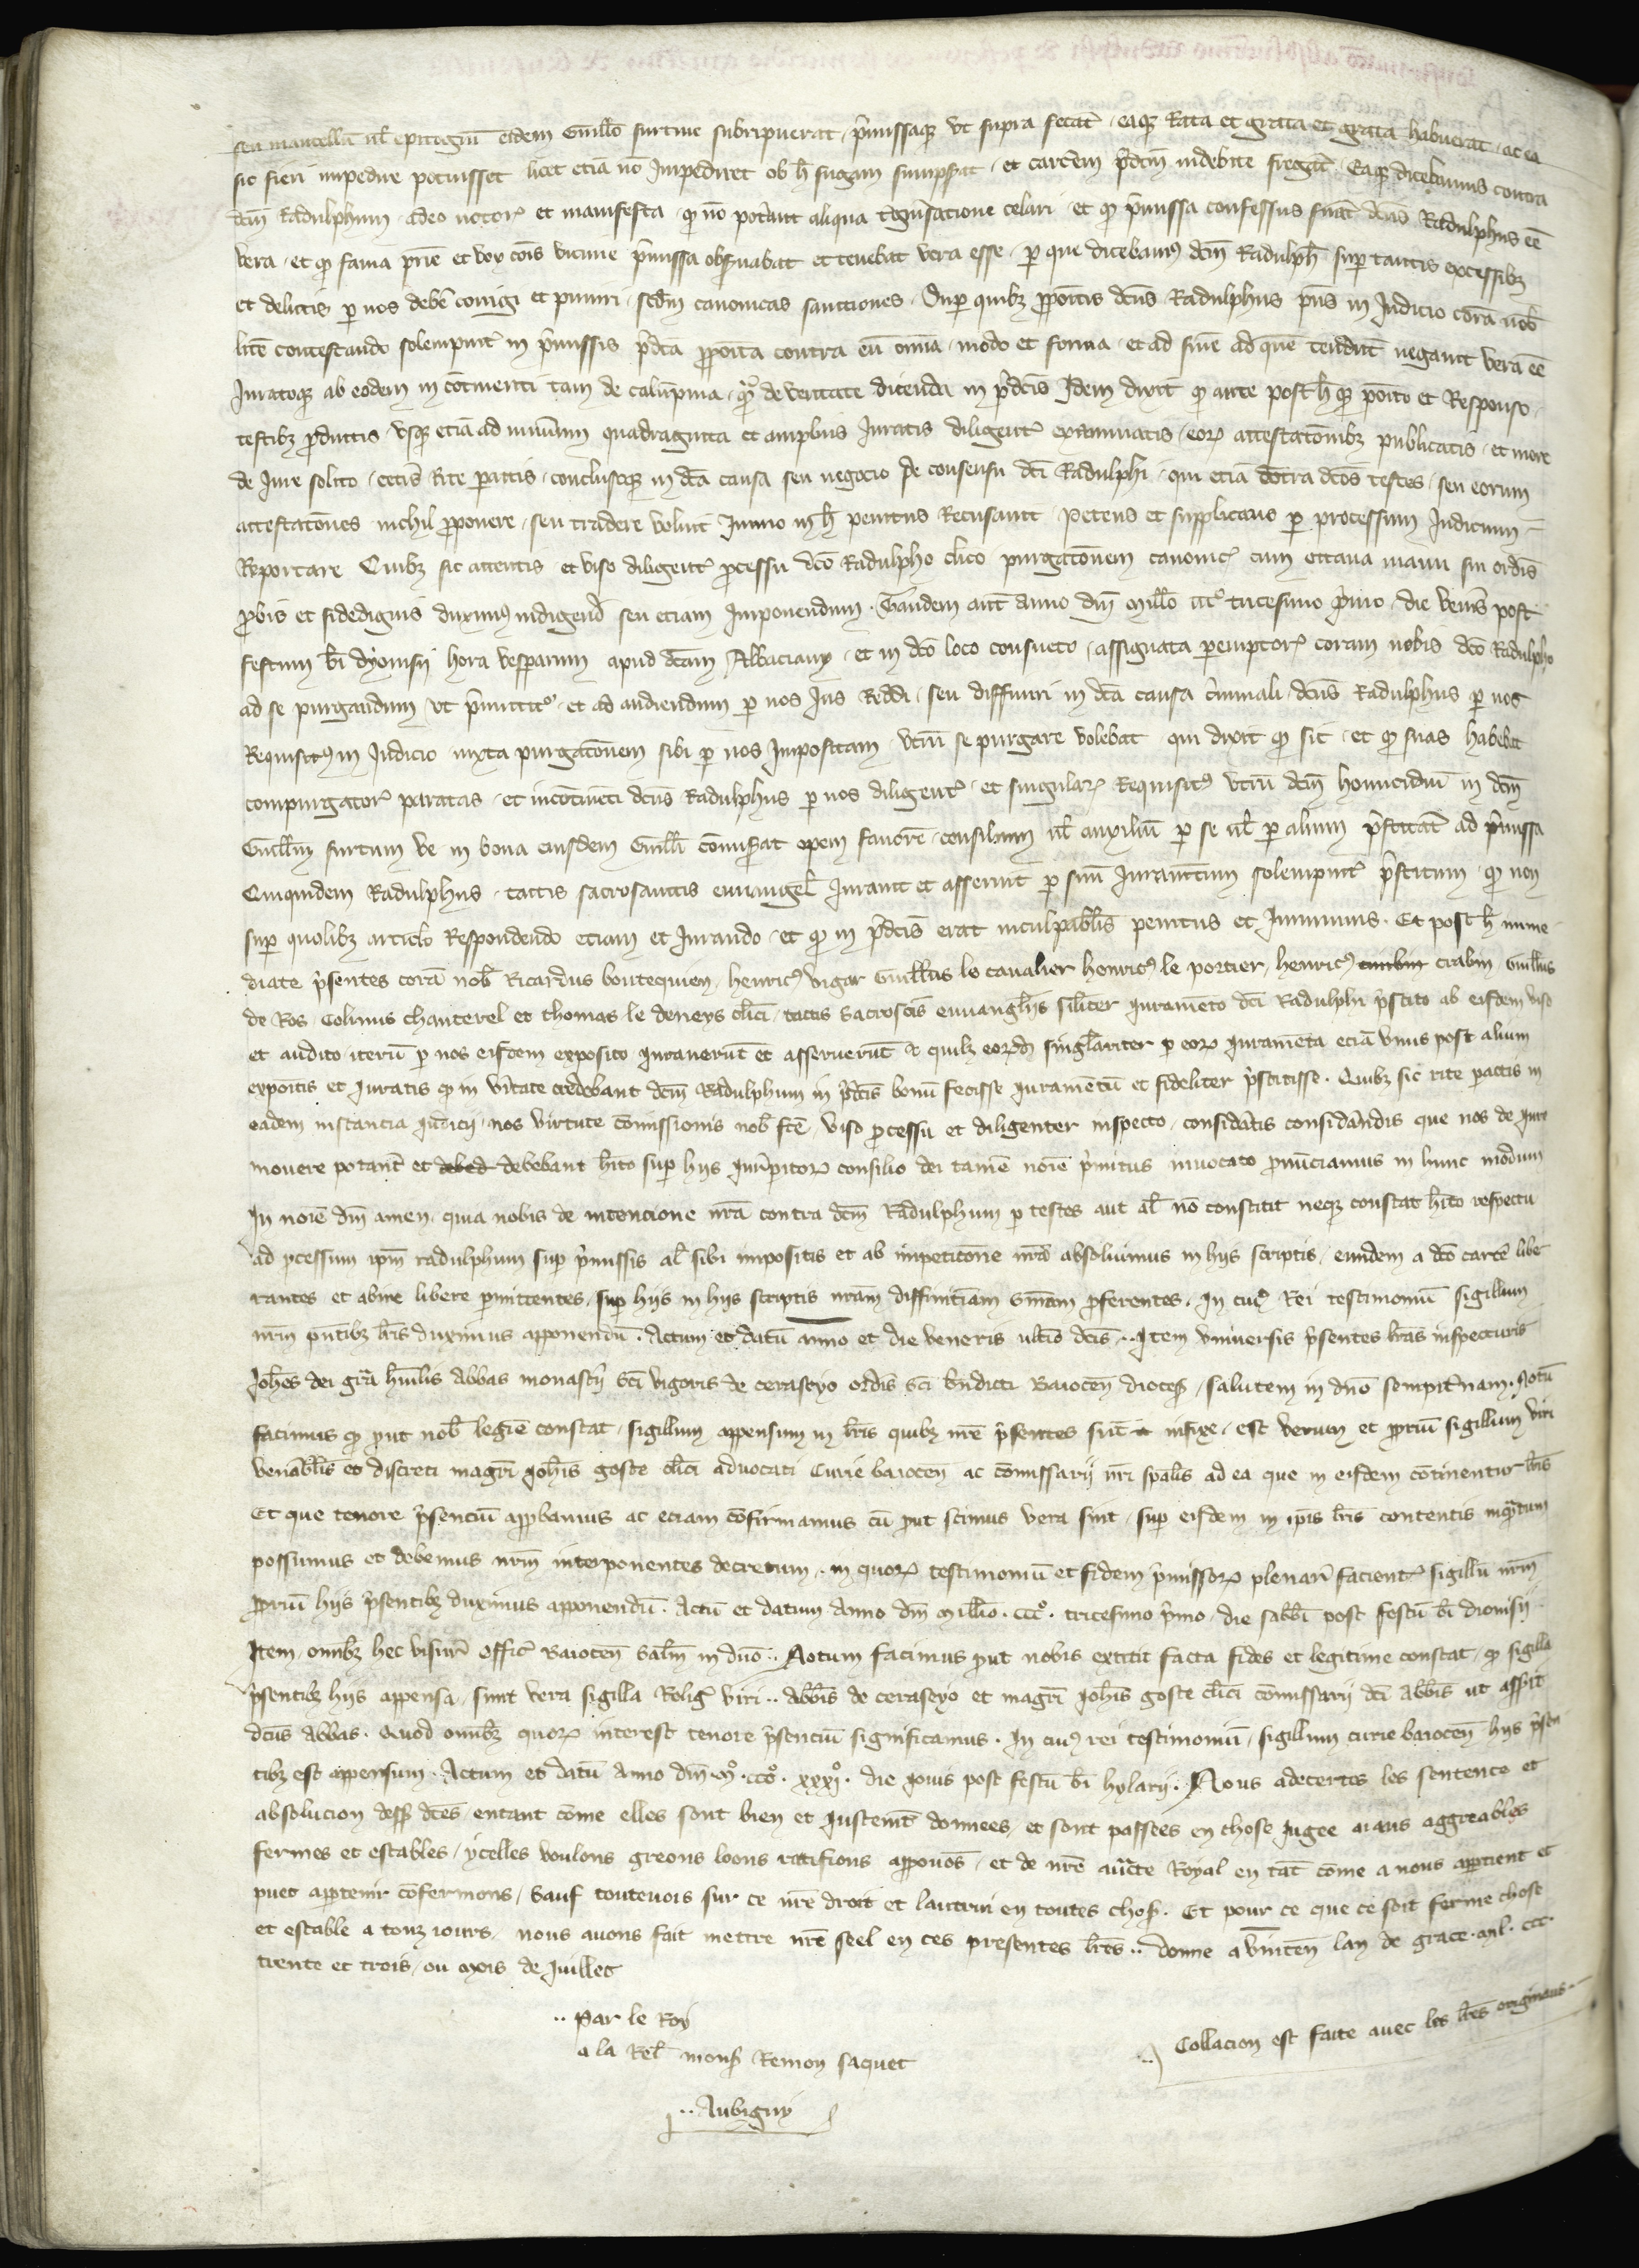 seu mantellū ul epitogiū eidem Guillo furtive subripuerat p̄missaqȝ ut supra fecat̄ eaqȝ Rata et grata et grata habuerat ac ea
sic fieri impedire potuisset licet etiā nō Impediret ob h̄ fugam sumpserat et carcēm p̄dcm indebite fregat̄ Eaqȝ dicebamus contra
dcm̄ Radulphum adeo notor̄ et manifesta qȝ nō potant aliqua t̄giūsatione celari et qȝ p̄missa confessus fuat̄ dcūs Radulphus ēē
vera et qȝ fama p̄rie et vox cōis vicinie p̄missa obs̄uabat et tenebat vera esse p que dicebamȝ dcm̄ Radulph̄ sup tantis excessibȝ
et delictis p nos debē corrigi et puniri scdm̄ canonicas sanctiones Sup quibȝ p̄poitis dcūs Radulphus p̄ns in Judicio corā nob̄
litē contestando solempnit̄ in p̄missis p̄dca p̄poita contra eū omia modo et forma et ad finē ad quē tendūt negauit vera ēē
Juratoqȝ ab eodem in cōtinenti tam de calūpnia qȝ de veritate dicenda in p̄dcis Idem dixit qȝ ante post h̄qȝ poito et Responso
testibȝ p̄ductis usqȝ etiā ad numum quadraginta et amplius Juratis diligent̄ examinatis eorȝ attestatōnibȝ publicatis et more
de Jure solito cetis Rite pactis conclusoqȝ in dca causa seu negocio de consensu dci Radulphi qui etiā cōtra dcos testes seu eorum
attestatōnes nichil p̄ponere seu tradere voluit Immo in h̄ penitus Recusauit Petens et supplicans p processum Judicium
Reportare Quibȝ sic attentis et viso diligent̄ p̄cessu dcō Radulpho clico purgatōnem canonic̄ cum octaua manu sui ordis
p̄bis et fidedignis duximȝ indigend̄ seu etiam Imponendum Tandem aūt anno dm̄ Millo ccc° tricesimo p̄imo die ven̄is post
festum bi dyonisij hora vesperarum apud dcam Abbaciam et in dcō loco consueto assignata peremptor̄ coram nobis dcō Radulpho
ad se purgandum ut p̄mittit̄ et ad audiendum p nos Jus Reddi seu diffiniri in dca causa c̄iminali dcūs Radulphus p nos
Requisitȝ in Judicio iuxta purgatōnem sibi p nos Impositam utrū se purgare volebat qui dixit qȝ sic et qȝ suas habebat
compurgator̄ paratas et incōtineti dcūs Radulphus p nos diligent̄ et singular̄ Requisitȝ utrū dcm̄ homicidiū in dcm̄
Guillm̄ furtum ve in bona eiusdem Guilli cōmiserat opem favorē consilium ul auxiliū p se ul p alium p̄stitat̄ ad p̄missa
Quiquidem Radulphus tactis sacrosanctis euuangel̄ Jurauit et asseruit p suū Juramtum solempnit̄ p̄stitum qȝ non
sup quolibȝ articlo Respondendo etiam et Jurando et qȝ in p̄dcis erat inculpabilis penitus et Immunis Et post h̄ imme
diate p̄sentes corā nob̄ Ricardus boutequien henricȝ vigor Guillus le cavalier henricȝ le portier henricȝ crabin Guillus
de Ros Colinus chanterel et thomas le deneys clici tactis Sacroscis euuangliis silit̄er Juramēto dci Radulphi p̄stito ab eisdem viso
et audito iterū p nos eisdem exposito Jurauerūt et asseruerūt & quilȝ eorūd̄ singlariter p eorȝ Juramēta etiā unus post alium
expoitis et Juratis qȝ in v̄itate credebant dcm̄ Radulphum in p̄dcis bonū fecisse Juramētū et fideliter p̄stitisse Quibȝ sic rite pactis in
eadem instancia Judicij nos virtute cōmissionis nob̄ fcē viso p̄cessu et diligenter inspecto consid̄atis consid̄andis que nos de Jure
mouere potant̄ et debebant hito sup hijs Jur̄peritorȝ consilio dei tamē noīe p̄mitus inuocato p̄nūciamus in hunc modum
In noīe dm̄ amen quia nobis de intencione nra contra dcm̄ Radulphum p testes aut al̄ nō constitit neqȝ constat hito respectu
ad p̄cessum ipm̄ radulphum sup p̄missis al̄ sibi impositis et ab impetitōne nra absoluimus in hijs scriptis eundem a dcō carcē libe
rantes et abire libere p̄mittentes sup hijs in hijs scriptis nram diffinitiam sniam p̄ferentes In cuiȝ Rei testimoniū sigillum
nrm̄ p̄ntibȝ lris duximus apponendū Actum et datū anno et die veneris ultio dcis Item Vniuersis p̄sentes lras inspecturis
Johes dei gra humilis Abbas monastij sci vigoris de ceraseyo ordis sci bn̄dicti Baiocen̄ dioces̄ salutem in dnō sempit̄nam Notū
facimus qȝ p̄ut nob̄ legiē constat sigillum appensum in lris quibȝ nre p̄sentes sūt infixe est verum et p̄priū sigillum viri
venablis et discreti magri Johis goste clici aduocati Curie baiocen̄ ac cōmissarij nri spalis ad ea que in eisdem cōtinentur lris
Et que tenore p̄senciū app̄bamus ac etiam cōfirmamus cū p̄ut scimus vera sint sup eisdem in ipis lris contentis inq̄ntum
possumus et debemus nrm̄ interponentes decretum in quorȝ testimoniū et fidem p̄missorȝ plenari facient̄ sigillū nrm̄
p̄priū hijs p̄sentibȝ duximus apponendū Actū et datum Anno dm̄ Millio ccc° tricesimo p̄mo die sabbi post festū bi dionisij
Item omibȝ hec visur̄ offic̄ Baiocen̄ Salm̄ in dnō Notum facimus p̄ut nobis extitit facta fides et legitime constat qȝ sigilla
p̄sentibȝ hijs appensa sunt vera sigilla Reliḡ viri Abbis de ceraseyo et magri Johis goste clici cōmissarij dci Abbis ut asserit
dcūs Abbas Quod omibȝ quorȝ interest tenore p̄senciū significamus In cuiȝ rei testimoniū sigillum curie baiocen̄ hijs p̄sen
tibȝ est appensum Actum et datū Anno dm̄ M° ccc° xxxi° die Jouis post festū bi hylarij Nous adecertes les sentence et
absolucion dess̄ dces entant cōme elles sont bien et Justemt̄ donnees et sont passees en chose Jugee aians aggreables
fermes et estables ycelles voulons greons loons ratifions app̄uōs et de nre auctē Royal en tāt cōme a nous appartient et
puet app̄tenir cōfermons Sauf toutevois sur ce nre droit et lautrui en toutes chos̄ Et pour ce que ce soit ferme chose
et estable a touz iours nous auons fait mettre nre seel en ces presentes lrēs donne a vincēn lan de grace mil ccc
trente et trois ou Mois de Juillet
Par le Roy
a la Rel̄ mons̄ Remon saquet
Aubigny
Collacion est faite auec les lrēs originaus